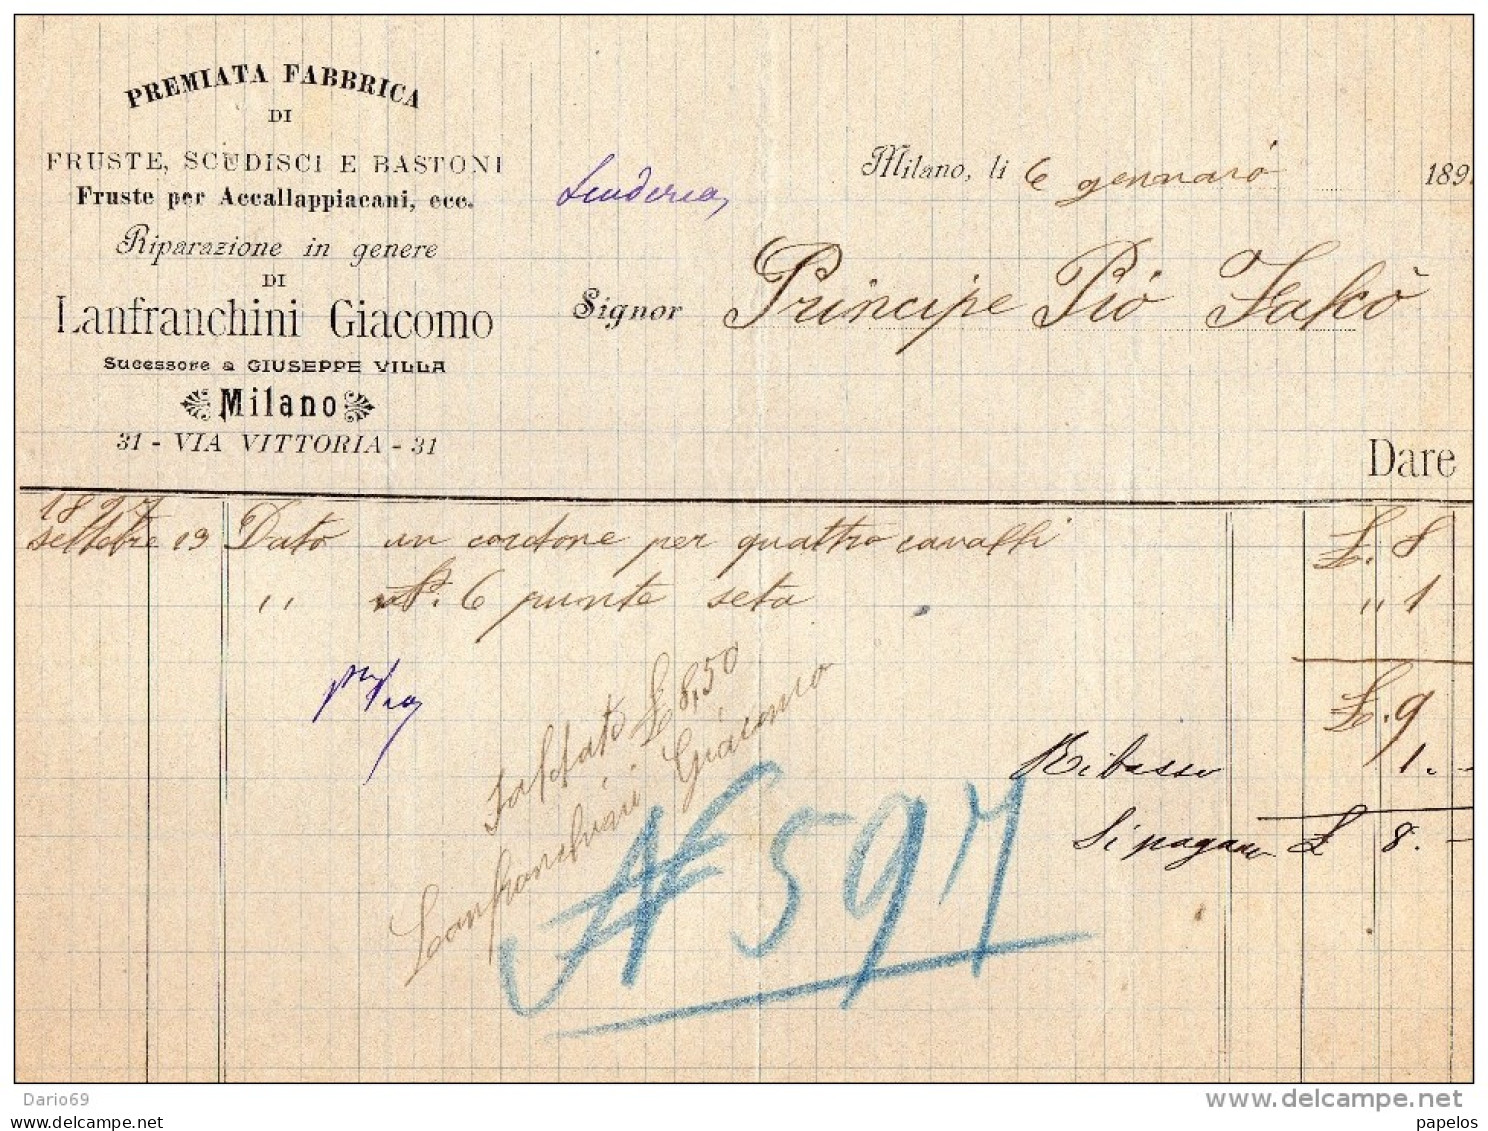 PREMIATA FABBRICA
DI
FRUSTE, SCUDISCI E BASTONI
Fruste per Accallappiacani, ecc.
Riparazione in genere
DI
Lanfranchini Giacomo
Sucessore a GIUSEPPE VILLA
Milano
31 - VIA VITTORIA - 31
Scuderia
Milano, li 6 gennaio 189
Signor Principe Pio Falcò
Dare
1897
settebre 19 Dato un cordone per quattro cavalli £. 8
" N. 6 punte seta " 1
£. 9
Ribasso 1.-
Si pagano £ 8.-
Saldato £ 8,50
Lanfranchini Giacomo
N 597
Dario69
www.delcampe.net
papelos